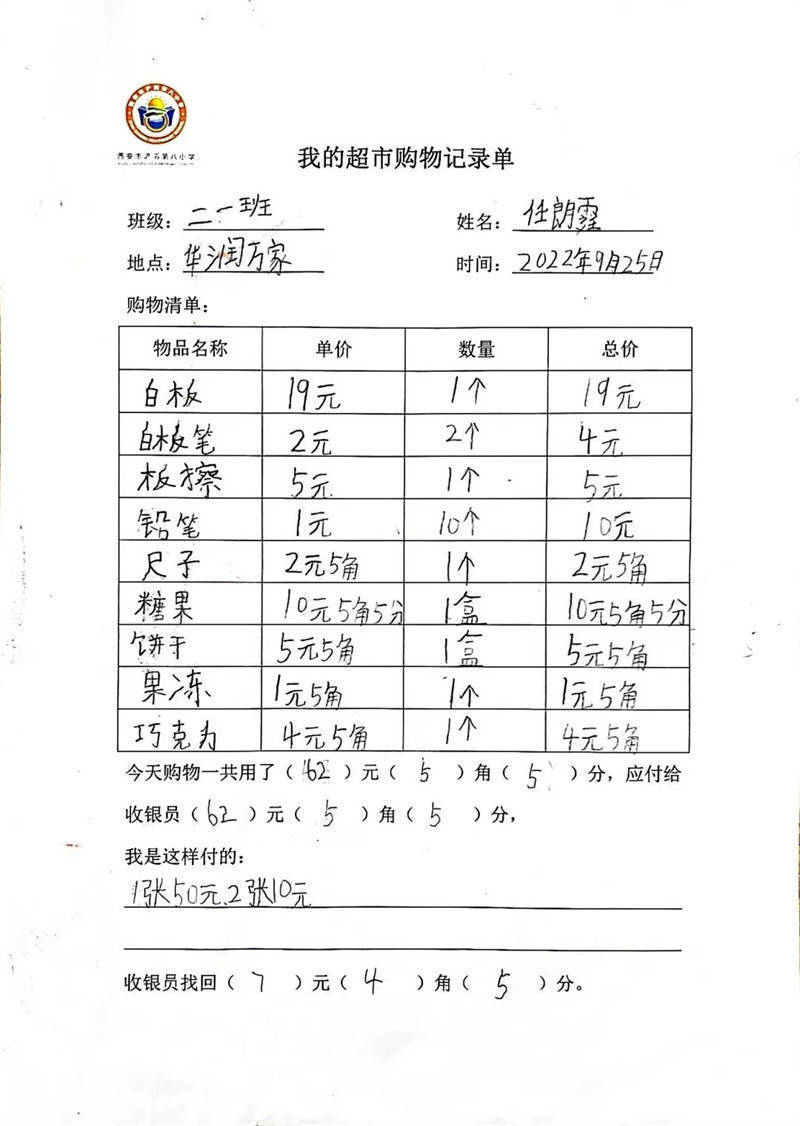 西安市浐灞第八小学
我的超市购物记录单
班级：二一班 姓名：任朗霏
地点：华润万家 时间：2022年9月25日
购物清单：
物品名称 单价 数量 总价
白板 19元 1个 19元
白板笔 2元 2个 4元
板擦 5元 1个 5元
铅笔 1元 10个 10元
尺子 2元5角 1个 2元5角
糖果 10元5角5分 1盒 10元5角5分
饼干 5元5角 1盒 5元5角
果冻 1元5角 1个 1元5角
巧克力 4元5角 1个 4元5角
今天购物一共用了（62）元（5）角（5）分，应付给
收银员（62）元（5）角（5）分，
我是这样付的：
1张50元、2张10元
收银员找回（7）元（4）角（5）分。